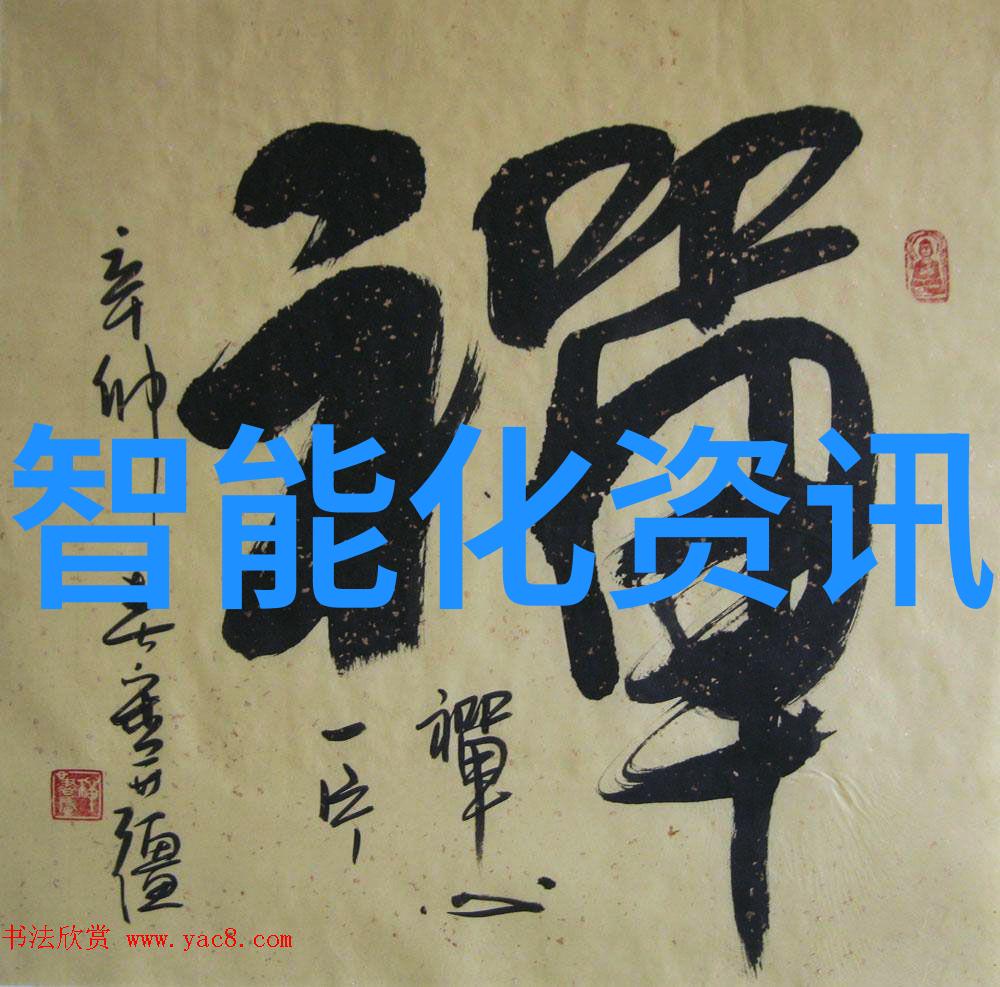 禪
禪心
一片
辛卯
智能化资讯
书法欣赏 www.yac8.com